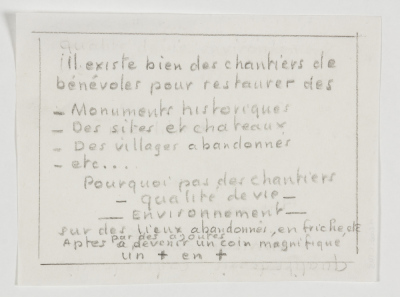 ill existe bien des chantiers de
bénévoles pour restaurer des
- Monuments historiques
- Des sites et chateaux
- Des villages abandonnés
- etc...
Pourquoi pas des chantiers
- qualité de vie -
- Environnement -
sur des lieux abandonnés, en friche, etc
par des ajoutés
Aptes à devenir un coin magnifique
un + en +